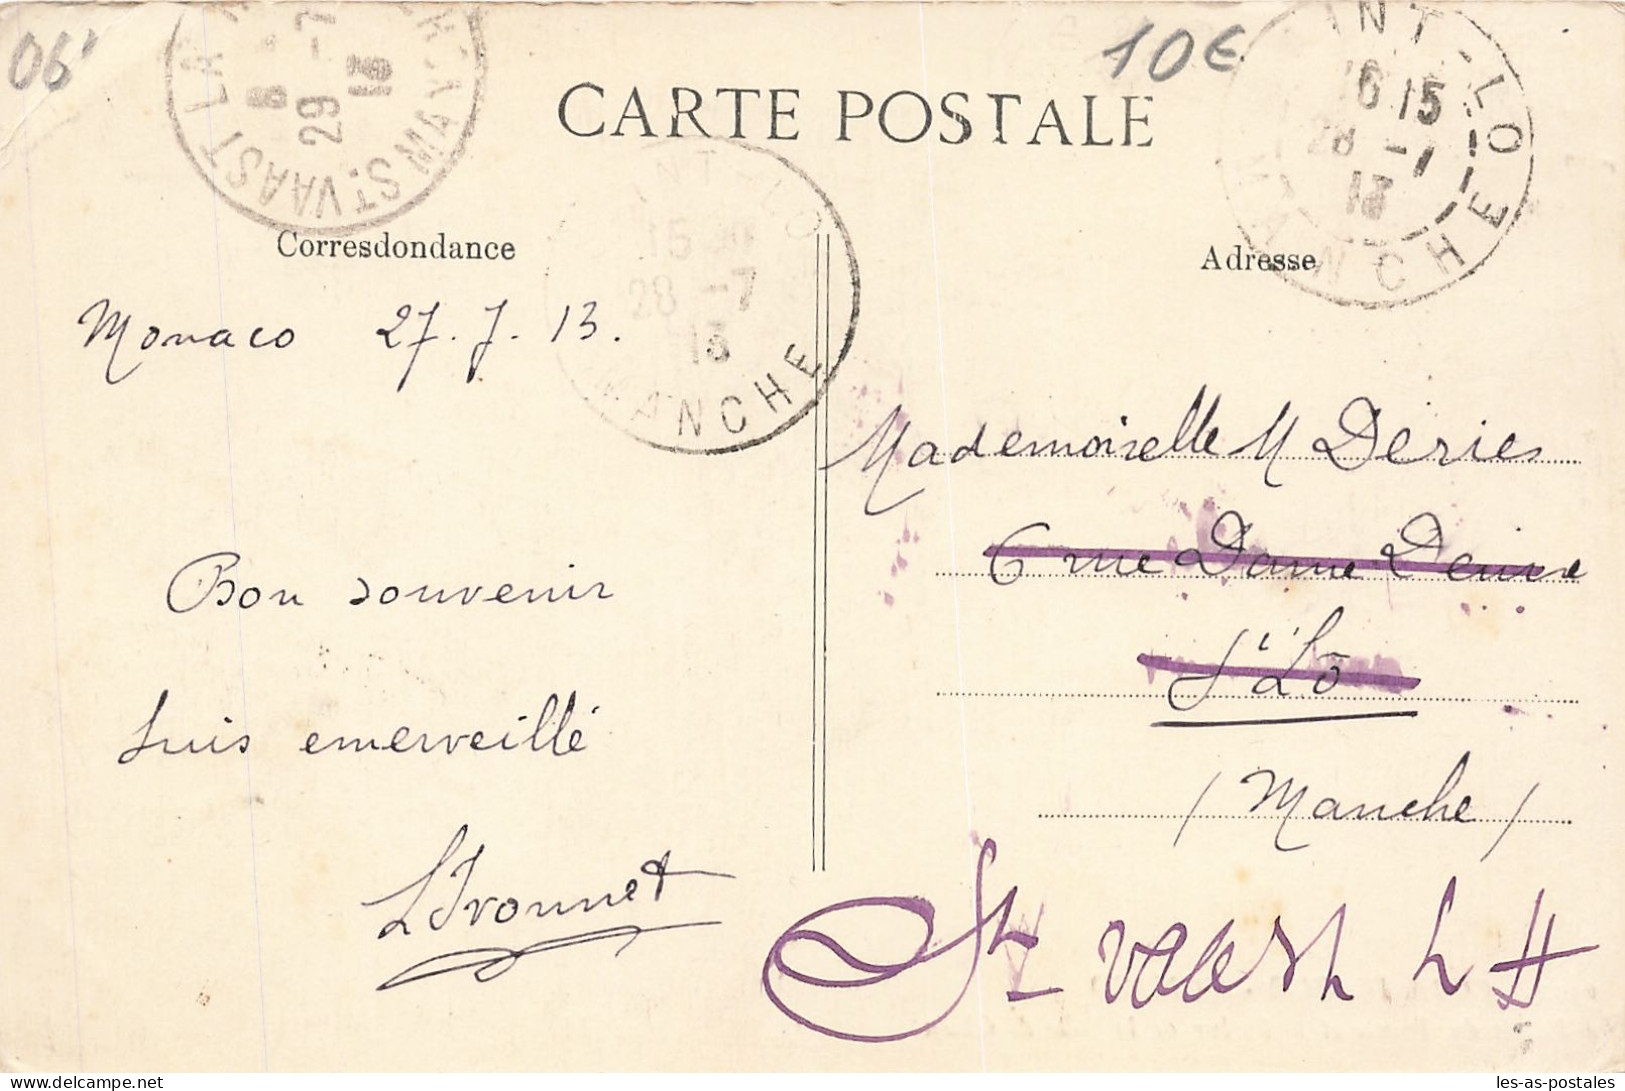 06'
10€
CARTE POSTALE
ST VAAST LA
29 -7
13
INT-LO
15
28 -7
13
MANCHE
INT-LO
15
28 -
13
MANCHE
Corresdondance
Adresse
Monaco 27. 7. 13.
Bon souvenir
suis emerveillé
Mademoiselle M Deries
6 rue Dame Denise
St Lô
(Manche)
St vaast L H
les-as-postales